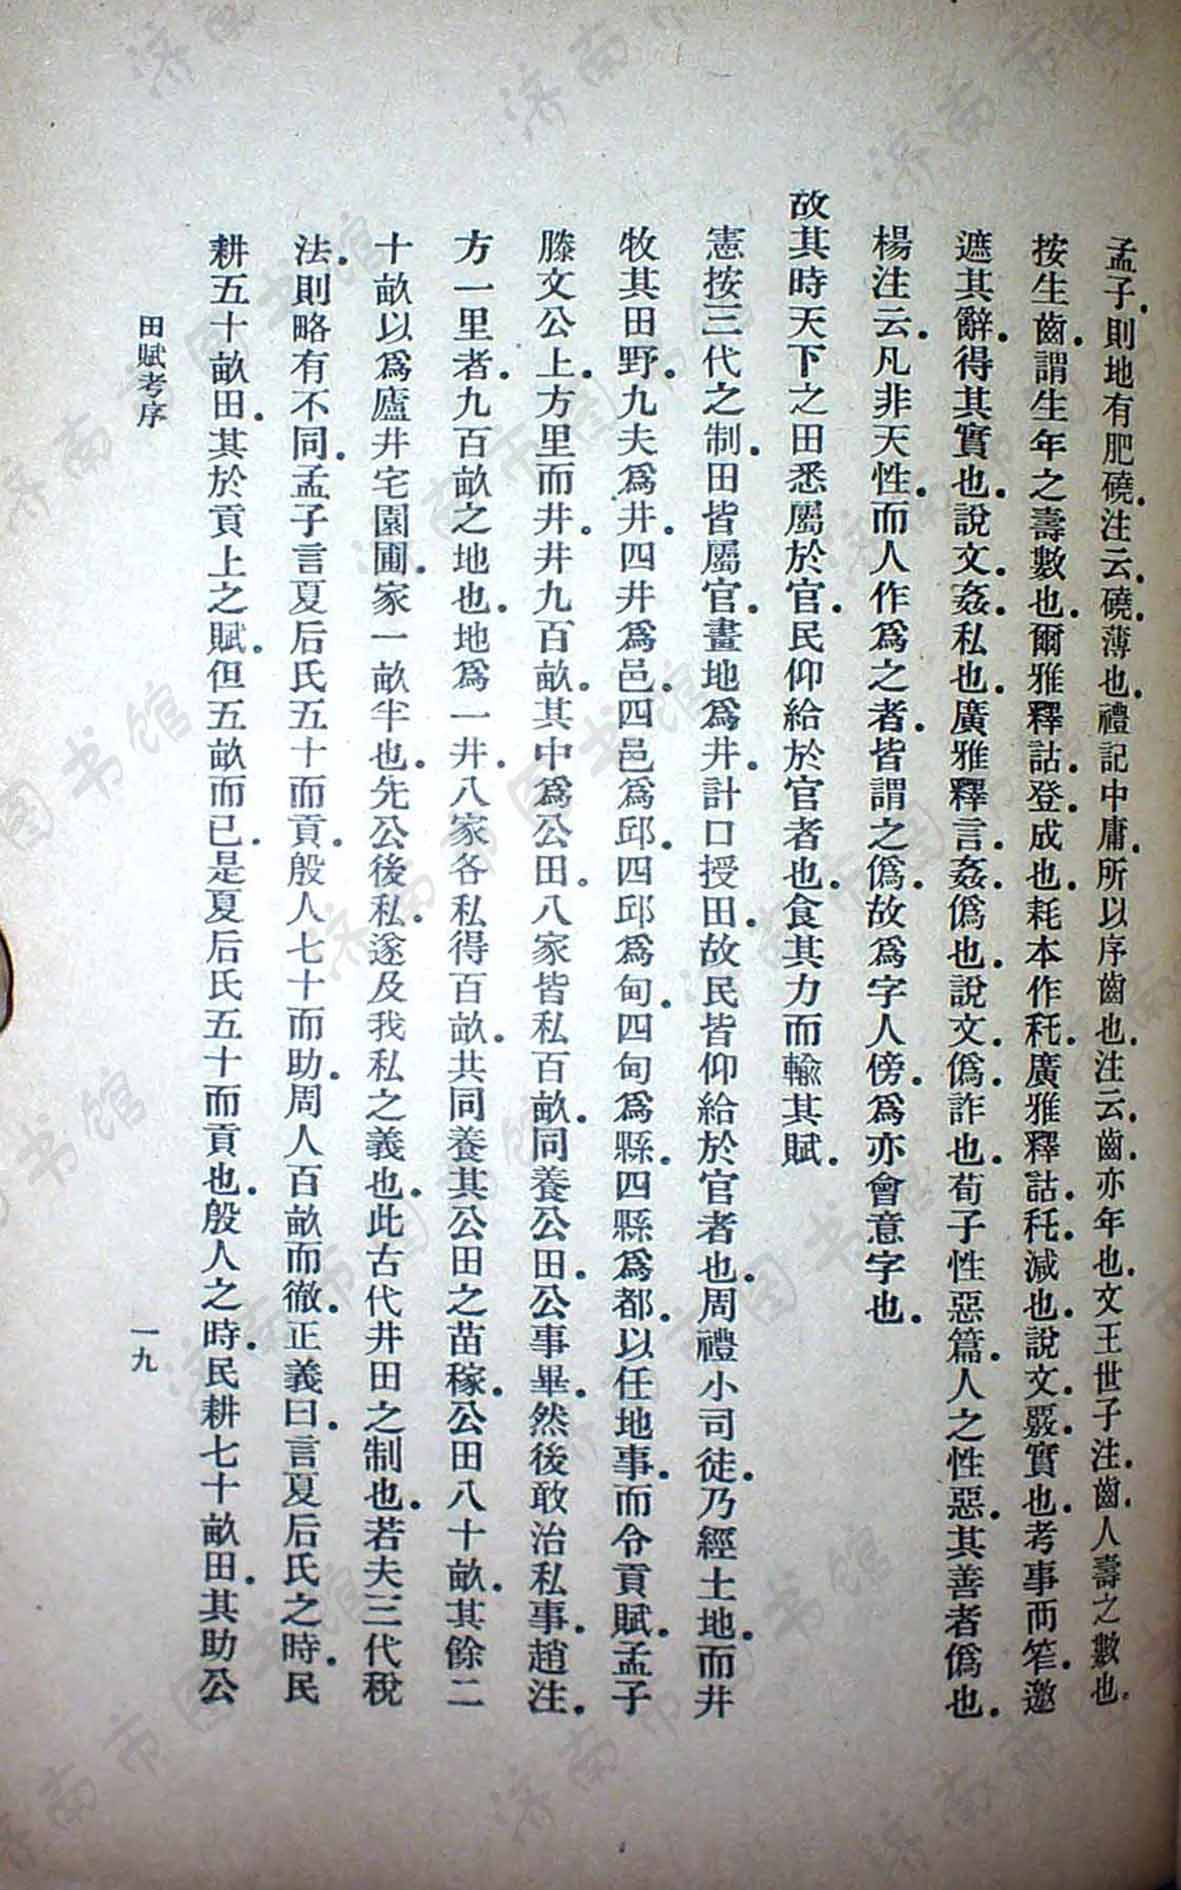 孟子.則地有肥磽.注云.磽.薄也.禮記中庸.所以序齒也.注云.齒.亦年也.文王世子注.齒.人壽之數也.
按生齒.謂生年之壽數也.爾雅釋詁.登.成也.耗本作秏.廣雅釋詁.秏.減也.說文.覈.實也.考事襾笮.邀
遮其辭.得其實也.說文.姦.私也.廣雅釋言.姦.僞也.說文.僞.詐也.荀子性惡篇.人之性惡.其善者僞也.
楊注云.凡非天性.而人作爲之者.皆謂之僞.故爲字人傍.爲亦會意字也.
故其時天下之田悉屬於官.民仰給於官者也.食其力而輸其賦.
憲按三代之制.田皆屬官.畫地爲井.計口授田.故民皆仰給於官者也.周禮小司徒.乃經土地.而井
牧其田野.九夫爲井.四井爲邑.四邑爲邱.四邱爲甸.四甸爲縣.四縣爲都.以任地事.而令貢賦.孟子
滕文公上.方里而井.井九百畝.其中爲公田.八家皆私百畝.同養公田.公事畢.然後敢治私事.趙注.
方一里者.九百畝之地也.地爲一井.八家各私得百畝.共同養其公田之苗稼.公田八十畝.其餘二
十畝以爲廬井宅園圃.家一畝半也.先公後私.遂及我私之義也.此古代井田之制也.若夫三代稅
法.則略有不同.孟子言夏后氏五十而貢.殷人七十而助.周人百畝而徹.正義曰.言夏后氏之時.民
耕五十畝田.其於貢上之賦.但五畝而已.是夏后氏五十而貢也.殷人之時.民耕七十畝田.其助公
田賦考序
一九
济南市图书馆